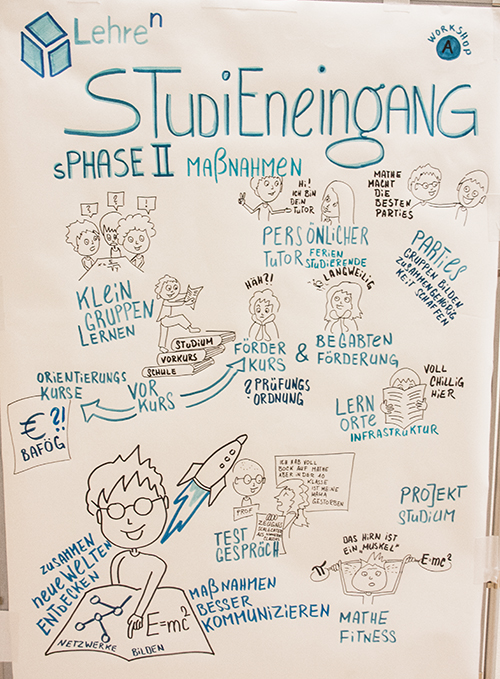 Lehre^n
WORKSHOP
A
STUDIENEINGANG
SPHASE II MAẞNAHMEN
! ? !
Hi!
ICH BIN
DEIN
TUTOR
MATHE
MACHT
DIE
BESTEN
PARTIES
PERSÖNLICHER
TUTOR FERIEN
STUDIERENDE
PARTIES
GRUPPEN BILDEN
ZUSAMMENGEHÖRIG
KEIT SCHAFFEN
KLEIN
GRUPPEN
LERNEN
STUDIUM
VORKURS
SCHULE
HÄH?!
LANGWEILIG
FÖRDER
KURS
&
BEGABTEN
FÖRDERUNG
? PRÜFUNGS
ORDNUNG
ORIENTIERUNGS
KURSE
VOR
KURS
€?!
BAFÖG
VOLL
CHILLIG
HIER
LERN
ORTE
INFRASTRUKTUR
ICH HAB VOLL
BOCK AUF MATHE
ABER IN DER 10.
KLASSE
IST MEINE
MAMA
GESTORBEN
PROF
TEST
GESPRÄCH
PROJEKT
STUDIUM
DAS HIRN IST
EIN „MUSKEL“
π
E=mc²
MATHE
FITNESS
ZUSAMMEN
NEUE WELTEN
ENTDECKEN
E=mc²
NETZWERKE BILDEN
MAẞNAHMEN
BESSER
KOMMUNIZIEREN